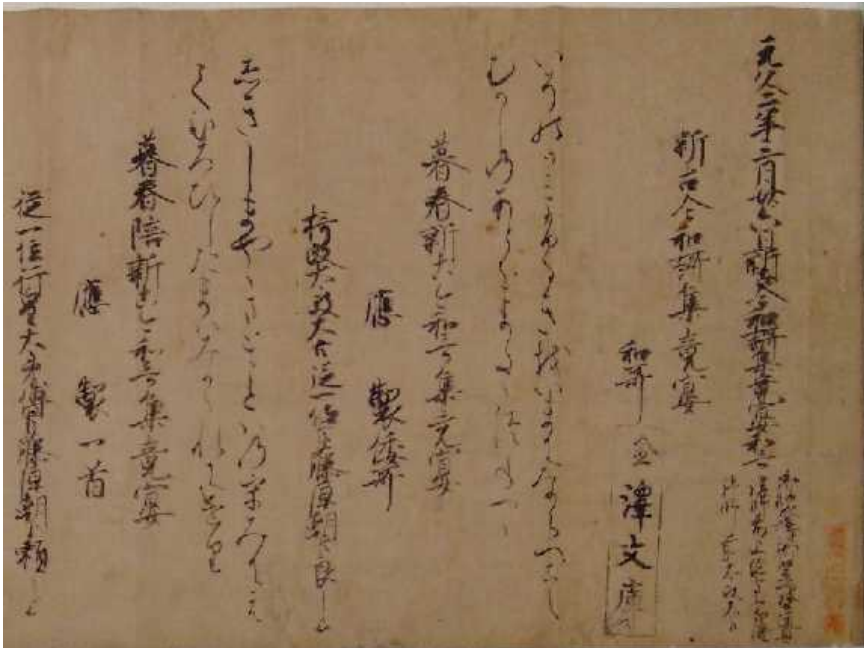 元久二年三月廿六日新古今和謌集竟宴和哥
新古今和謌集竟宴
和哥
金澤文庫
いそのかみふるきをいまにならへこし
むかしのあとをまたたつねつゝ
暮春新古今和哥集竟宴
應製倭哥
摂政太政大臣従一位臣藤原朝臣良上
しきしまややまとことはの海にして
ひろひしたまはみかゝれにけり
暮春陪新古今和哥集竟宴
應製一首
従一位行皇太子傅臣藤原朝臣頼上